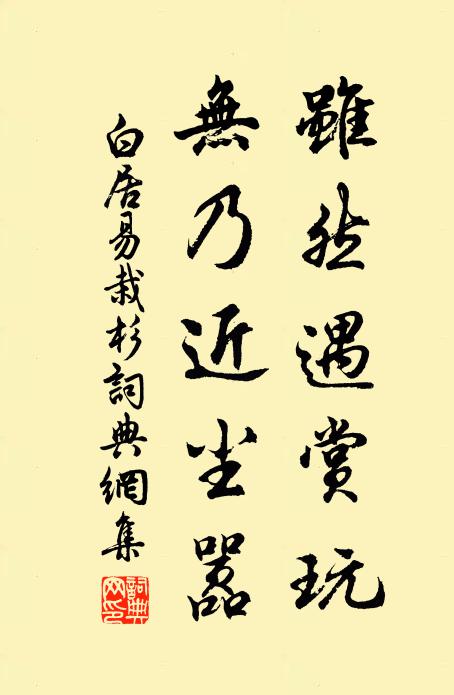 雖然遇賞玩
無乃近尘嚣
白居易栽杉詞典網集
詞典
网印